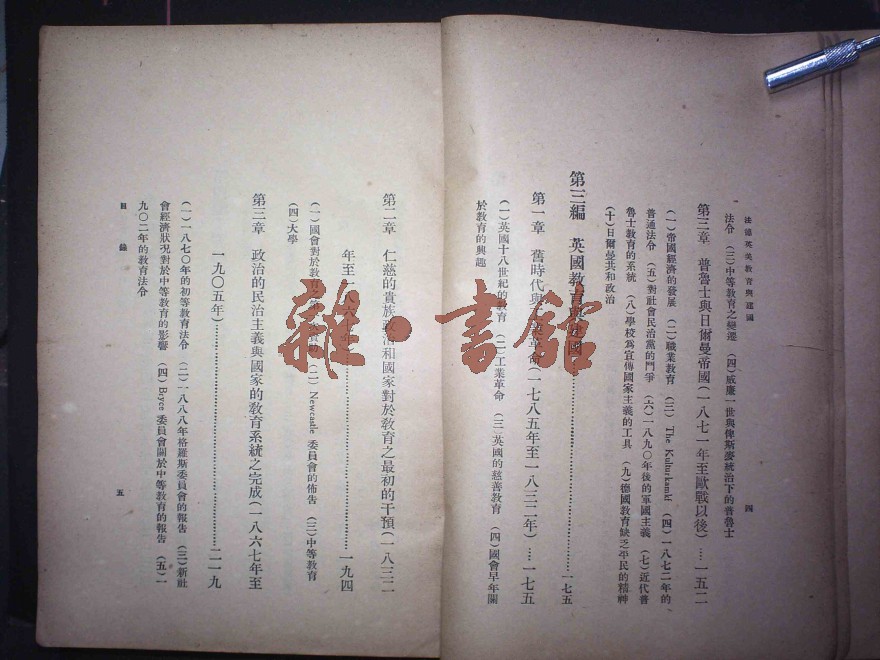 法德英美教育與建國
四
法令 (三)中等教育之變遷 (四)威廉一世與俾斯麥統治下的普魯士
第三章 普魯士與日爾曼帝國(一八七一年至歐戰以後)…一五二
(一)帝國經濟的發展 (二)職業教育 (三) The Kulturkamkf (四)一八七二年的
普通法令 (五)對社會民治黨的鬥爭 (六)一八九〇年後的軍國主義 (七)近代普
魯士教育的系統 (八)學校爲宣傳國家主義的工具 (九)德國教育缺乏平民的精神
(十)日爾曼共和政治
第三編 英國教育與建國…一七五
第一章 舊時代與工業革命(一七八五年至一八三二年)…一七五
(一)英國十八世紀的教育 (二)工業革命 (三)英國的慈善教育 (四)國會早年關
於教育的興趣
第二章 仁慈的貴族政治和國家對於教育之最初的干預(一八三二
年至一八六七年…一九四
(一)國會對於教育之 (二) Newcastle 委員會的佈告 (三)中等教育
(四)大學
第三章 政治的民治主義與國家的教育系統之完成(一八六七年至
一九〇五年)…二一九
(一)一八七〇年的初等教育法令 (二)一八八八年格羅斯委員會的報告 (三)新社
會經濟狀況對於中等教育的影響 (四) Bryce 委員會關於中等教育的報告 (五)一
九〇二年的教育法令
目錄
五
雜·書館